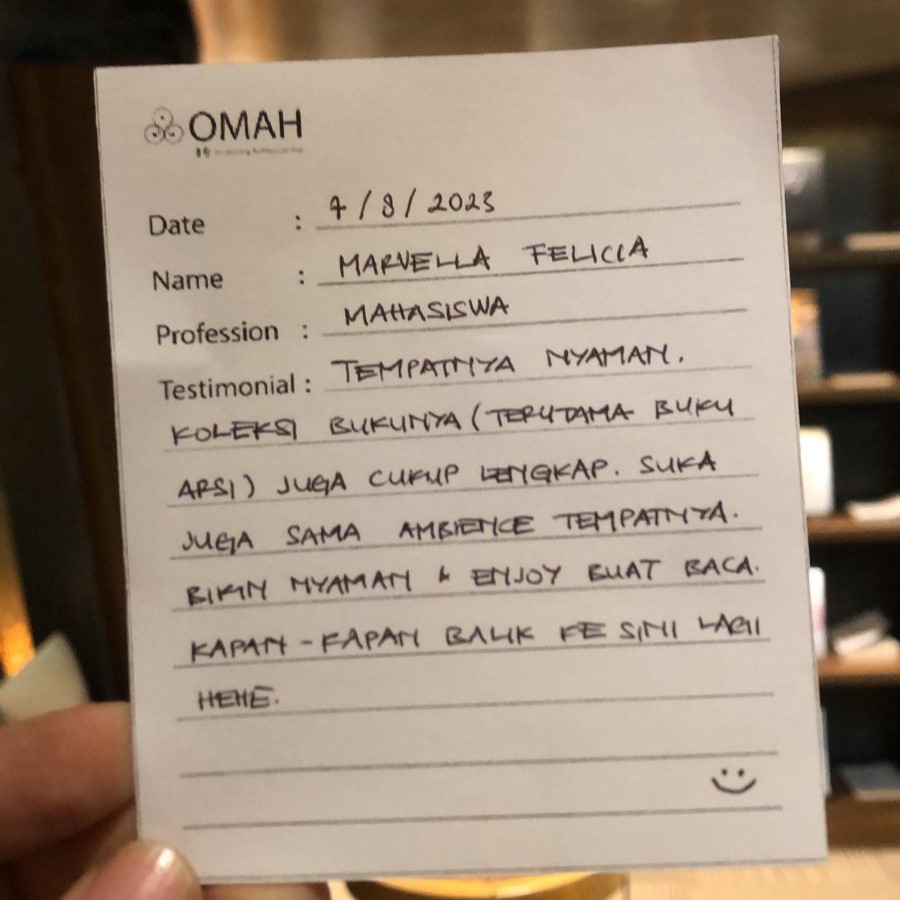 OMAH
Date : 7/8/2023
Name : MARVELLA FELICIA
Profession : MAHASISWA
Testimonial : TEMPATNYA NYAMAN.
KOLEKSI BUKUNYA (TERUTAMA BUKU
ARSI) JUGA CUKUP LENGKAP. SUKA
JUGA SAMA AMBIENCE TEMPATNYA.
BIKIN NYAMAN & ENJOY BUAT BACA.
KAPAN-KAPAN BALIK KE SINI LAGI
HEHE.